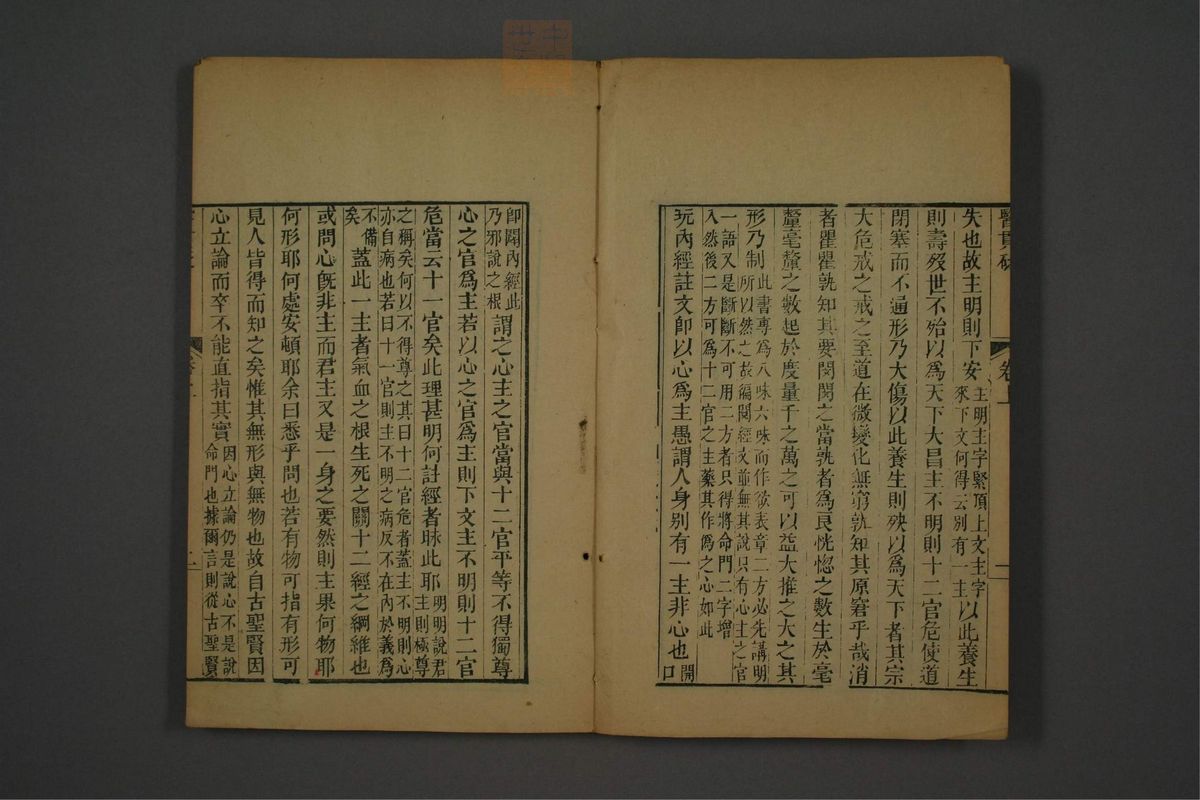 醫貫砭
卷上
失也故主明則下安主明主字緊頂上文主字來下文何得云別有一主以此養生
則壽歿世不殆以為天下大昌主不明則十二官危使道
閉塞而不通形乃大傷以此養生則殃以為天下者其宗
大危戒之戒之至道在微變化無窮孰知其原窘乎哉消
者瞿瞿孰知其要閔閔之當孰者為良恍惚之數生於毫
釐毫釐之數起於度量千之萬之可以益大推之大之其
形乃制此書專為八味六味而作欲表章二方必先講明所以然之故徧閱經文並無其說只有心主之官
一語又是斷斷不可用二方者只得將命門二字增入然後二方可為十二官之主藥其作偽之心如此
玩內經註文卽以心為主愚謂人身別有一主非心也開口
卽闢內經此乃邪說之根謂之心主之官當與十二官平等不得獨尊
心之官為主若以心之官為主則下文主不明則十二官
危當云十一官矣此理甚明何註經者昧此耶明明說君主則極尊
之稱矣何以不得尊之其曰十二官危者蓋主不明則心亦自病也若曰十一官則主不明之病反不在內於義為
不備矣蓋此一主者氣血之根生死之關十二經之綱維也
或問心旣非主而君主又是一身之要然則主果何物耶
何形耶何處安頓耶余曰悉乎問也若有物可指有形可
見人皆得而知之矣惟其無形與無物也故自古聖賢因
心立論而卒不能直指其實因心立論仍是說心不是說命門也據爾言則從古聖賢
二